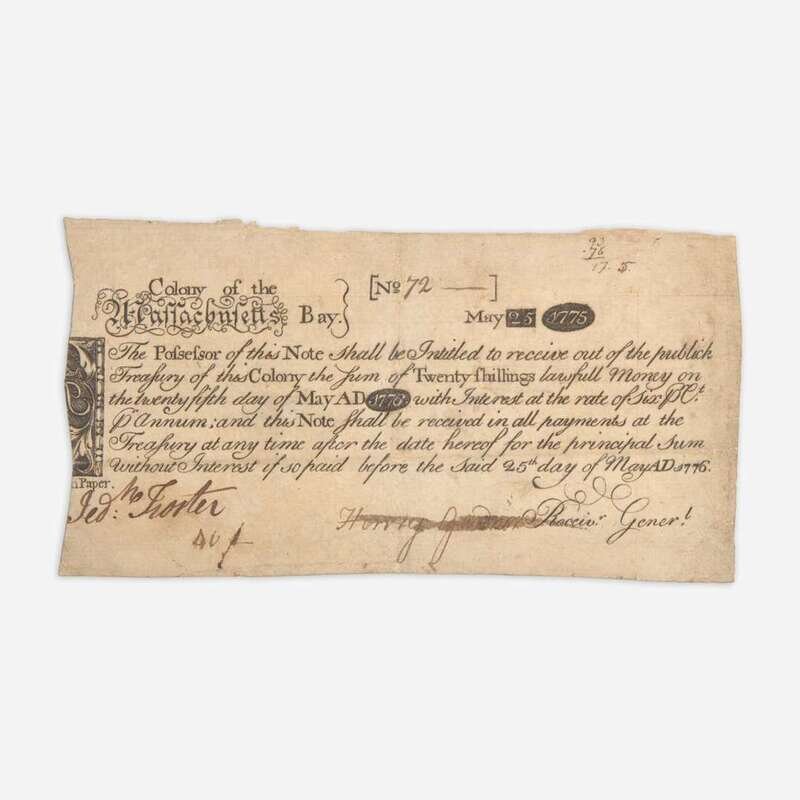 93
76
17. 5.
Colony of the
Massachusetts Bay.
[No 72 — ]
May 25 1775
The Possessor of this Note shall be Intitled to receive out of the publick
Treasury of this Colony the sum of Twenty shillings lawfull Money on
the twenty fifth day of May AD 1776 with Interest at the rate of Six ₱ Ct.
₱ Annum; and this Note shall be received in all payments at the
Treasury at any time after the date hereof for the principal Sum
without Interest if so paid before the said 25th day of May AD 1776.
n Paper.
Jedh. Foster
Receivr. Generl.